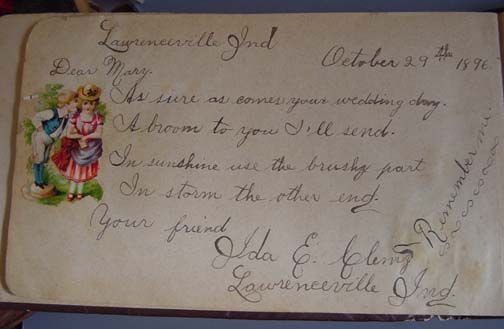 Lawrenceville Ind
October 29th 1896
Dear Mary.
As sure as comes your wedding day.
A broom to you I'll send.
In sunshine use the brushy part
In storm the other end.
Your friend
Ida E. Clemz
Lawrenceville Ind.
Remember me.